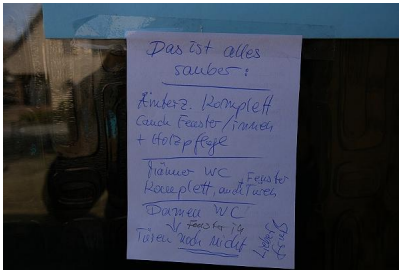 Das ist alles
sauber:
Ämterz. Komplett
(auch Fenster/innen
+ Holzpflege
Männer WC
Fenster
Komplett, auch Türen
Damen WC
↓ Fenster
Türen noch nicht